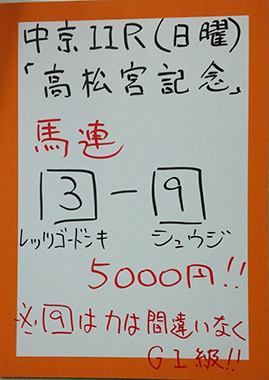 中京11R(日曜)
「高松宮記念」
馬連
3-9
レッツゴードンキ シュウジ
5000円!!
必9は力は間違いなく
GI級!!